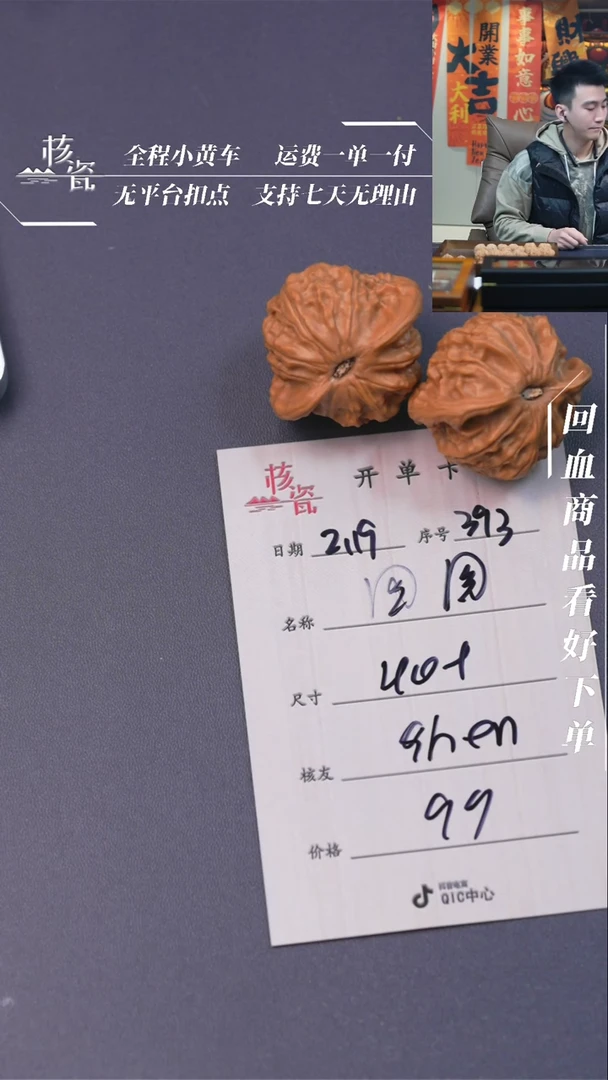 核瓷
全程小黄车 运费一单一付
无平台扣点 支持七天无理由
開業
大吉
大利
事事如意
心
財
回血商品看好下单
核瓷
开单卡
日期 2.19 序号 393
名称 圆
尺寸 40+
核友 shen
价格 99
抖音电商
QIC中心